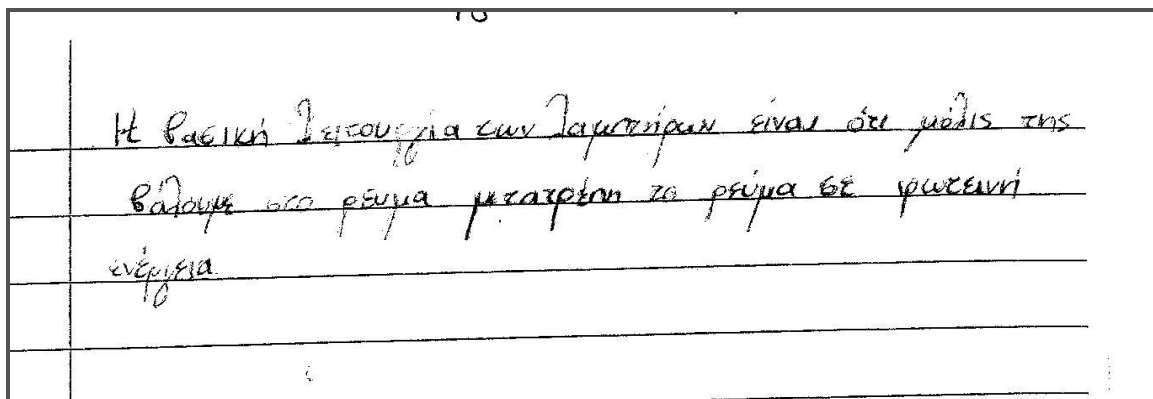 Η βασική λειτουργία των λαμπτήρων είναι ότι μόλις της
βάλουμε στο ρευμα μετατρέπη το ρεύμα σε φωτεινή
ενέργεια